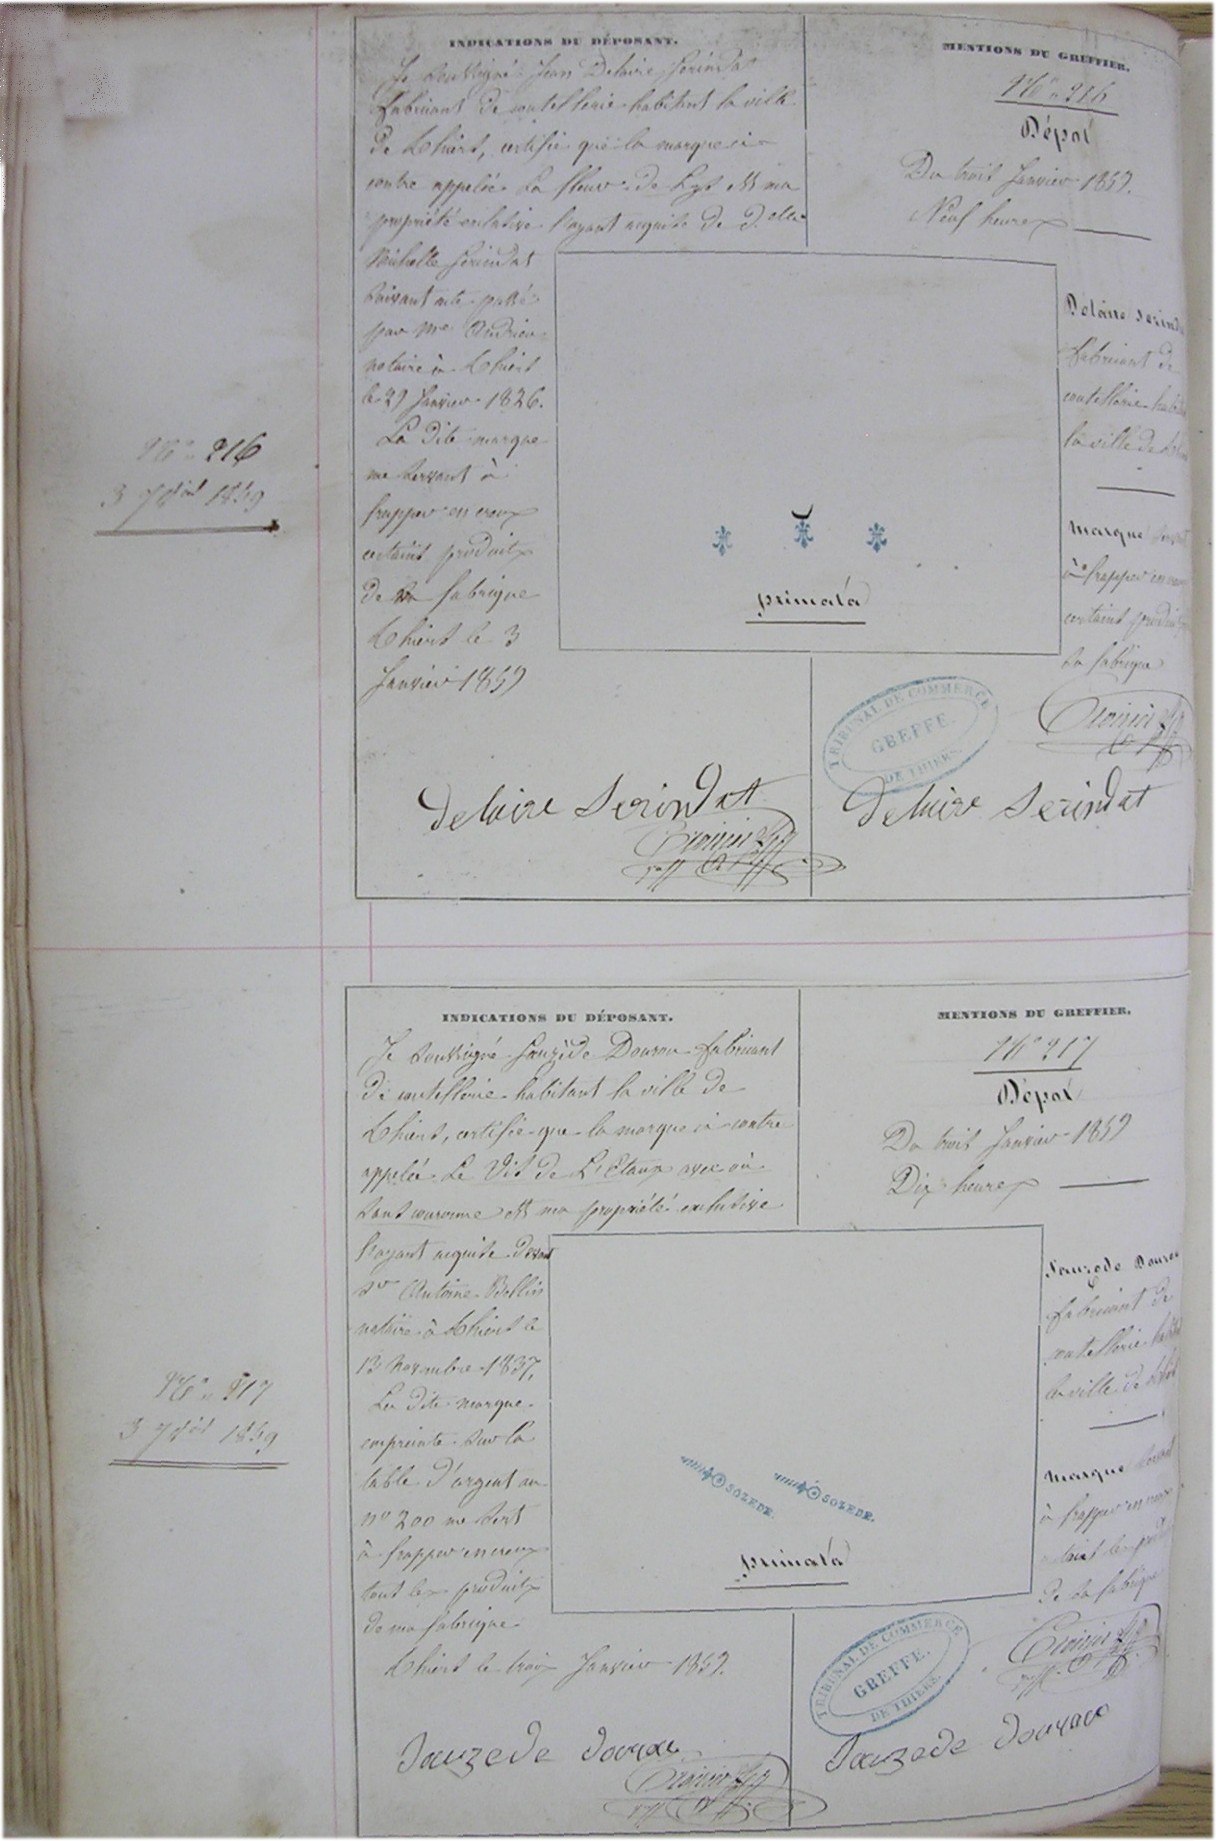 INDICATIONS DU DÉPOSANT.
Je soussigné Jean Delaire Serindat
fabricant de coutellerie habitant la ville
de Thiers, certifie que la marque ci
contre appelée La fleur de Lys est ma
propriété exclusive l'ayant acquise de D.elle
Michelle Serindat
suivant acte passé
par Me Andrieu
notaire à Thiers
le 29 Janvier 1826.
La dite marque
me servant à
frapper en creux
certains produits
de ma fabrique
Thiers le 3
Janvier 1859
delaire Serindat
MENTIONS DU GREFFIER.
N° 216
Dépot
Du trois Janvier 1859.
Neuf heures
Delaire Serinda
fabricant de
coutellerie habit
la ville de Thiers
Marque servant
à frapper en creux
certains produits
sa fabrique
primata
TRIBUNAL DE COMMERCE
GREFFE.
DE THIERS.
delaire Serindat
N° 216
3 1859
INDICATIONS DU DÉPOSANT.
Je soussigné Sauzède Dourou fabricant
de coutellerie habitant la ville de
Thiers, certifie que la marque ci contre
appelée Le Vis de L'Etaux avec ou
sans couronne est ma propriété exclusive
l'ayant acquise devant
Antoine Bellis
notaire à Thiers le
13 Novembre 1837,
La dite marque
empreinte sur la
table d'argent au
n° 200 me sert
à frapper en creux
tout les produits
de ma fabrique
Thiers le trois Janvier 1859.
Sauzede
MENTIONS DU GREFFIER.
N° 217
Dépot
Du trois Janvier 1859
Dix heures
Sauzede Dourou
fabricant de
coutellerie habit
la ville de Thiers
Marque servant
à frapper en creux
de sa fabrique
SOZEDE.
SOZEDE.
primata
TRIBUNAL DE COMMERCE
GREFFE.
DE THIERS.
Sauzede
N° 217
3 1859